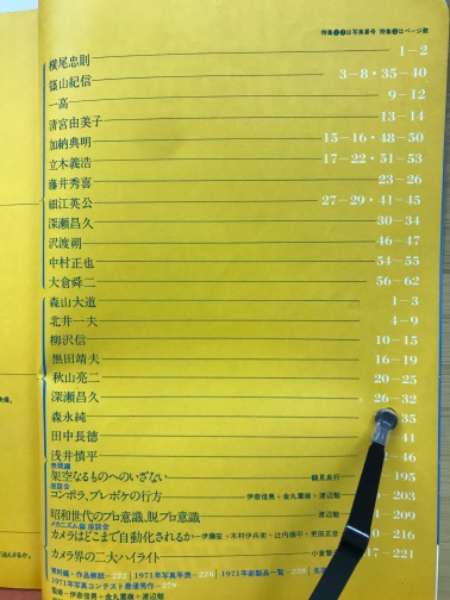 特集①②は写真番号 特集③はページ数
横尾忠則 1−2
篠山紀信 3−8・35−40
一高 9−12
清宮由美子 13−14
加納典明 15−16・48−50
立木義浩 17−22・51−53
藤井秀喜 23−26
細江英公 27−29・41−45
深瀬昌久 30−34
沢渡朔 46−47
中村正也 54−55
大倉舜二 56−62
森山大道 1−3
北井一夫 4−9
柳沢信 10−15
黒田靖夫 16−19
秋山亮二 20−25
深瀬昌久 26−32
森永純 35
田中長徳 41
浅井慎平 −46
表現編
架空なるものへのいざない 鶴見良行 195
座談会
コンポラ、ブレボケの行方 伊奈信男+金丸重嶺+渡辺勉 −203
昭和世代のプロ意識、脱プロ意識 渡辺勉 −209
メカニズム編 座談会
カメラはどこまで自動化されるか 伊藤宏+木村伊兵衛+辻内順平+更田正彦 0−216
カメラ界の二大ハイライト 小倉磐 17−221
資料編・作品解説−222 1971年写真年表−226 1971年新製品一覧−230
1971年写真コンテスト最優秀作−279
監修−伊奈信男+金丸重嶺+渡辺勉